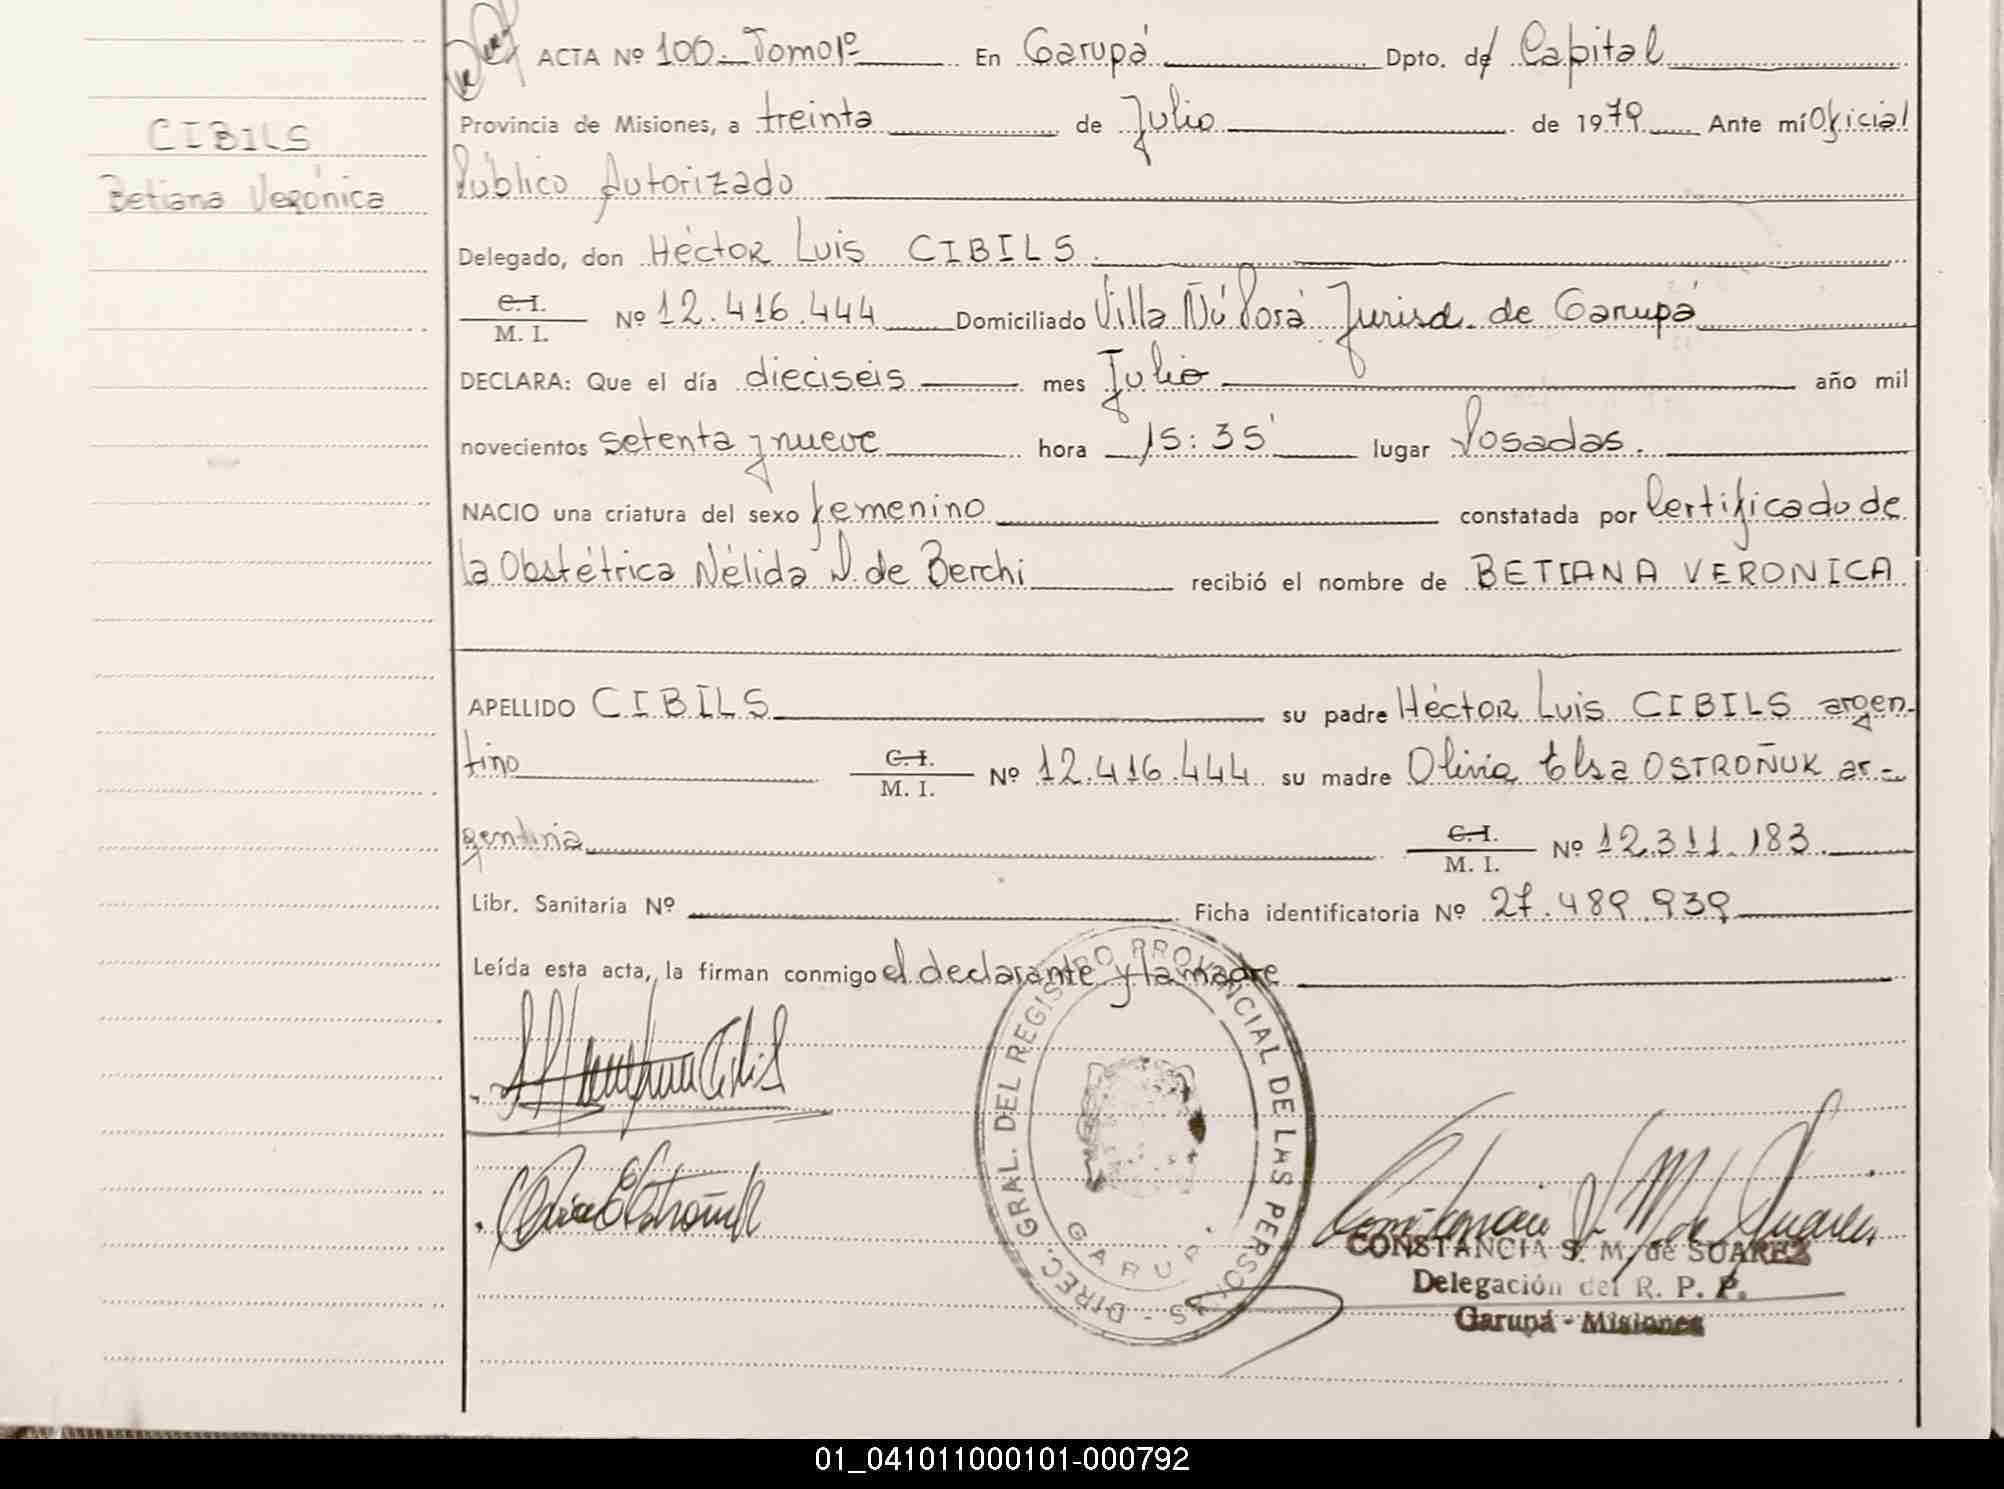 ACTA Nº 100. Tomo 1º En Garupá Dpto. de Capital
Provincia de Misiones, a treinta de Julio de 1979 Ante mí Oficial
CIBILS
Público Autorizado
Betiana Verónica
Delegado, don Héctor Luis CIBILS.
C. I.
M. I. Nº 12.416.444 Domiciliado Villa Ñú Porá Jurisd. de Garupá
DECLARA: Que el día dieciseis mes Julio año mil
novecientos setenta y nueve hora 15:35' lugar Posadas.
NACIO una criatura del sexo femenino constatada por Certificado de
la Obstétrica Nélida de Berchi recibió el nombre de BETIANA VERONICA
APELLIDO CIBILS su padre Héctor Luis CIBILS argen-
tino C. I. M. I. Nº 12.416.444 su madre Olivia Elsa OSTROÑUK ar-
gentina C. I. M. I. Nº 12.311.183.
Libr. Sanitaria Nº Ficha identificatoria Nº 27.489.939
Leída esta acta, la firman conmigo el declarante y la madre
DIREC. GRAL. DEL REGISTRO PROVINCIAL DE LAS PERSONAS
GARUPA
CONSTANCIA S. M. de SUAREZ
Delegación del R. P. P.
Garupá - Misiones
01_041011000101-000792